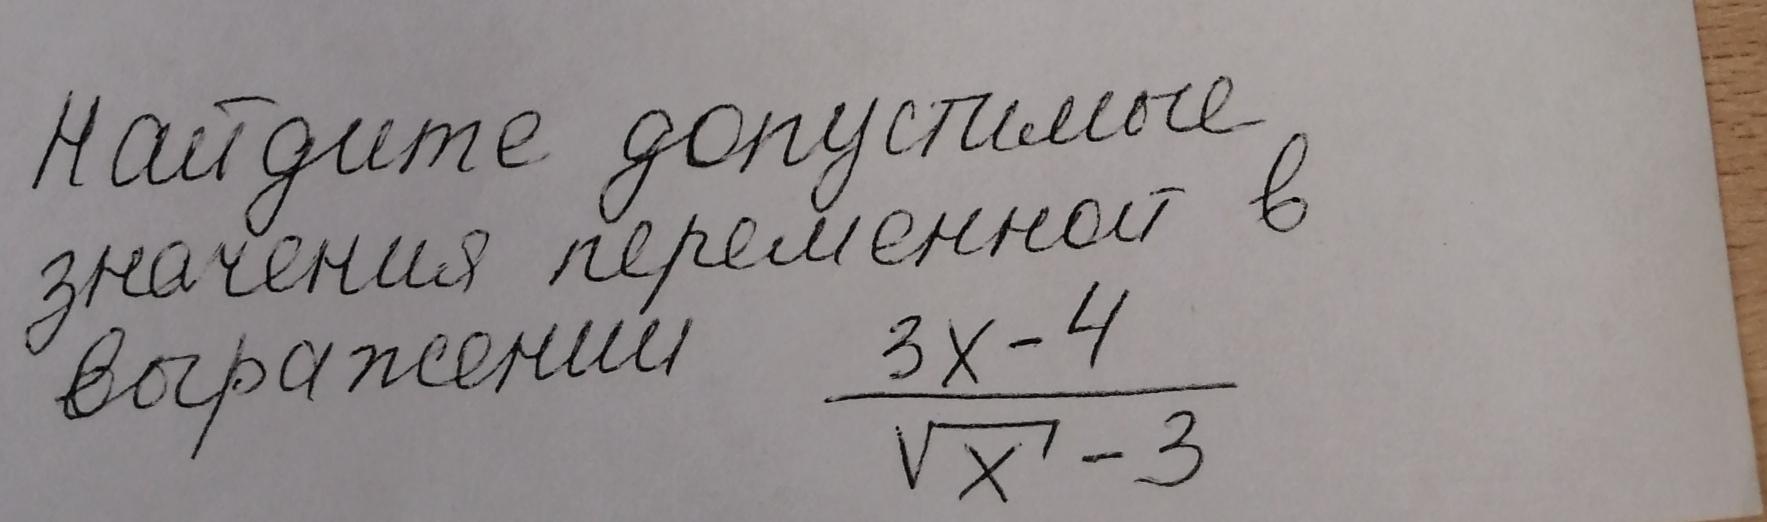 Найдите допустимые
значения переменной в
выражении (3x-4)/(√x-3)